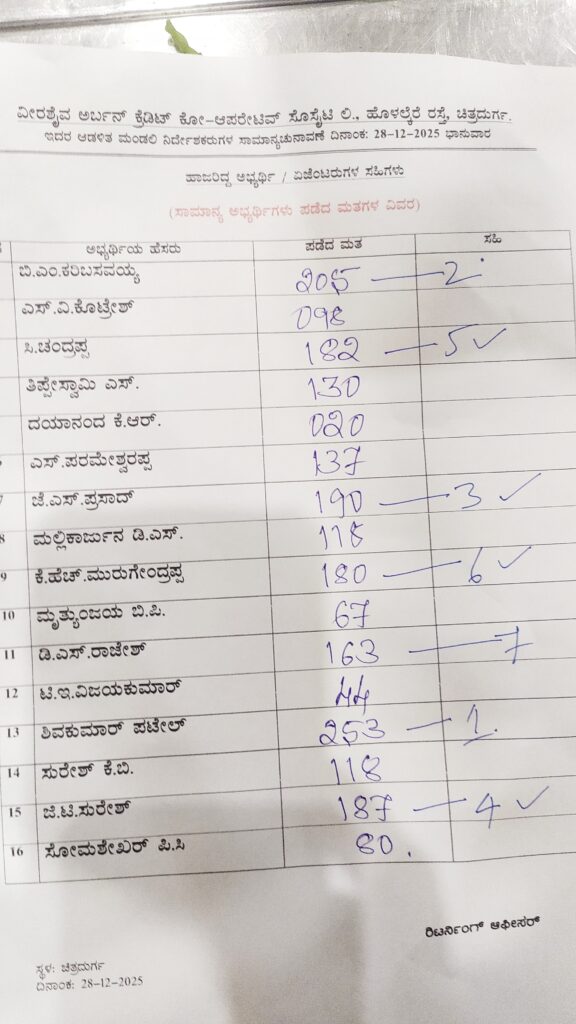 ವೀರಶೈವ ಅರ್ಬನ್ ಕ್ರೆಡಿಟ್ ಕೋ-ಆಪರೇಟಿವ್ ಸೊಸೈಟಿ ಲಿ., ಹೊಳಲ್ಕೆರೆ ರಸ್ತೆ, ಚಿತ್ರದುರ್ಗ.
ಇದರ ಆಡಳಿತ ಮಂಡಲಿ ನಿರ್ದೇಶಕರುಗಳ ಸಾಮಾನ್ಯಚುನಾವಣೆ ದಿನಾಂಕ: 28-12-2025 ಭಾನುವಾರ
ಹಾಜರಿದ್ದ ಅಭ್ಯರ್ಥಿ / ಏಜೆಂಟರುಗಳ ಸಹಿಗಳು
(ಸಾಮಾನ್ಯ ಅಭ್ಯರ್ಥಿಗಳು ಪಡೆದ ಮತಗಳ ವಿವರ)
ಅಭ್ಯರ್ಥಿಯ ಹೆಸರು ಪಡೆದ ಮತ ಸಹಿ
ಬಿ.ಎಂ.ಕರಿಬಸವಯ್ಯ 205 — 2
ಎಸ್.ವಿ.ಕೊಟ್ರೇಶ್ 098
ಸಿ.ಚಂದ್ರಪ್ಪ 182 — 5 ✓
ತಿಪ್ಪೇಸ್ವಾಮಿ ಎಸ್. 130
ದಯಾನಂದ ಕೆ.ಆರ್. 020
ಎಸ್.ಪರಮೇಶ್ವರಪ್ಪ 137
7 ಜೆ.ಎಸ್.ಪ್ರಸಾದ್ 190 — 3 ✓
8 ಮಲ್ಲಿಕಾರ್ಜುನ ಡಿ.ಎಸ್. 118
9 ಕೆ.ಹೆಚ್.ಮುರುಗೇಂದ್ರಪ್ಪ 180 — 6 ✓
10 ಮೃತ್ಯುಂಜಯ ಬಿ.ಪಿ. 67
11 ಡಿ.ಎಸ್.ರಾಜೇಶ್ 163 — 7
12 ಟಿ.ಇ.ವಿಜಯಕುಮಾರ್ 44
13 ಶಿವಕುಮಾರ್ ಪಟೇಲ್ 253 — 1.
14 ಸುರೇಶ್ ಕೆ.ಬಿ. 118
15 ಜಿ.ಟಿ.ಸುರೇಶ್ 187 — 4 ✓
16 ಸೋಮಶೇಖರ್ ಪಿ.ಸಿ 80.
ರಿಟರ್ನಿಂಗ್ ಆಫೀಸರ್
ಸ್ಥಳ: ಚಿತ್ರದುರ್ಗ
ದಿನಾಂಕ: 28-12-2025